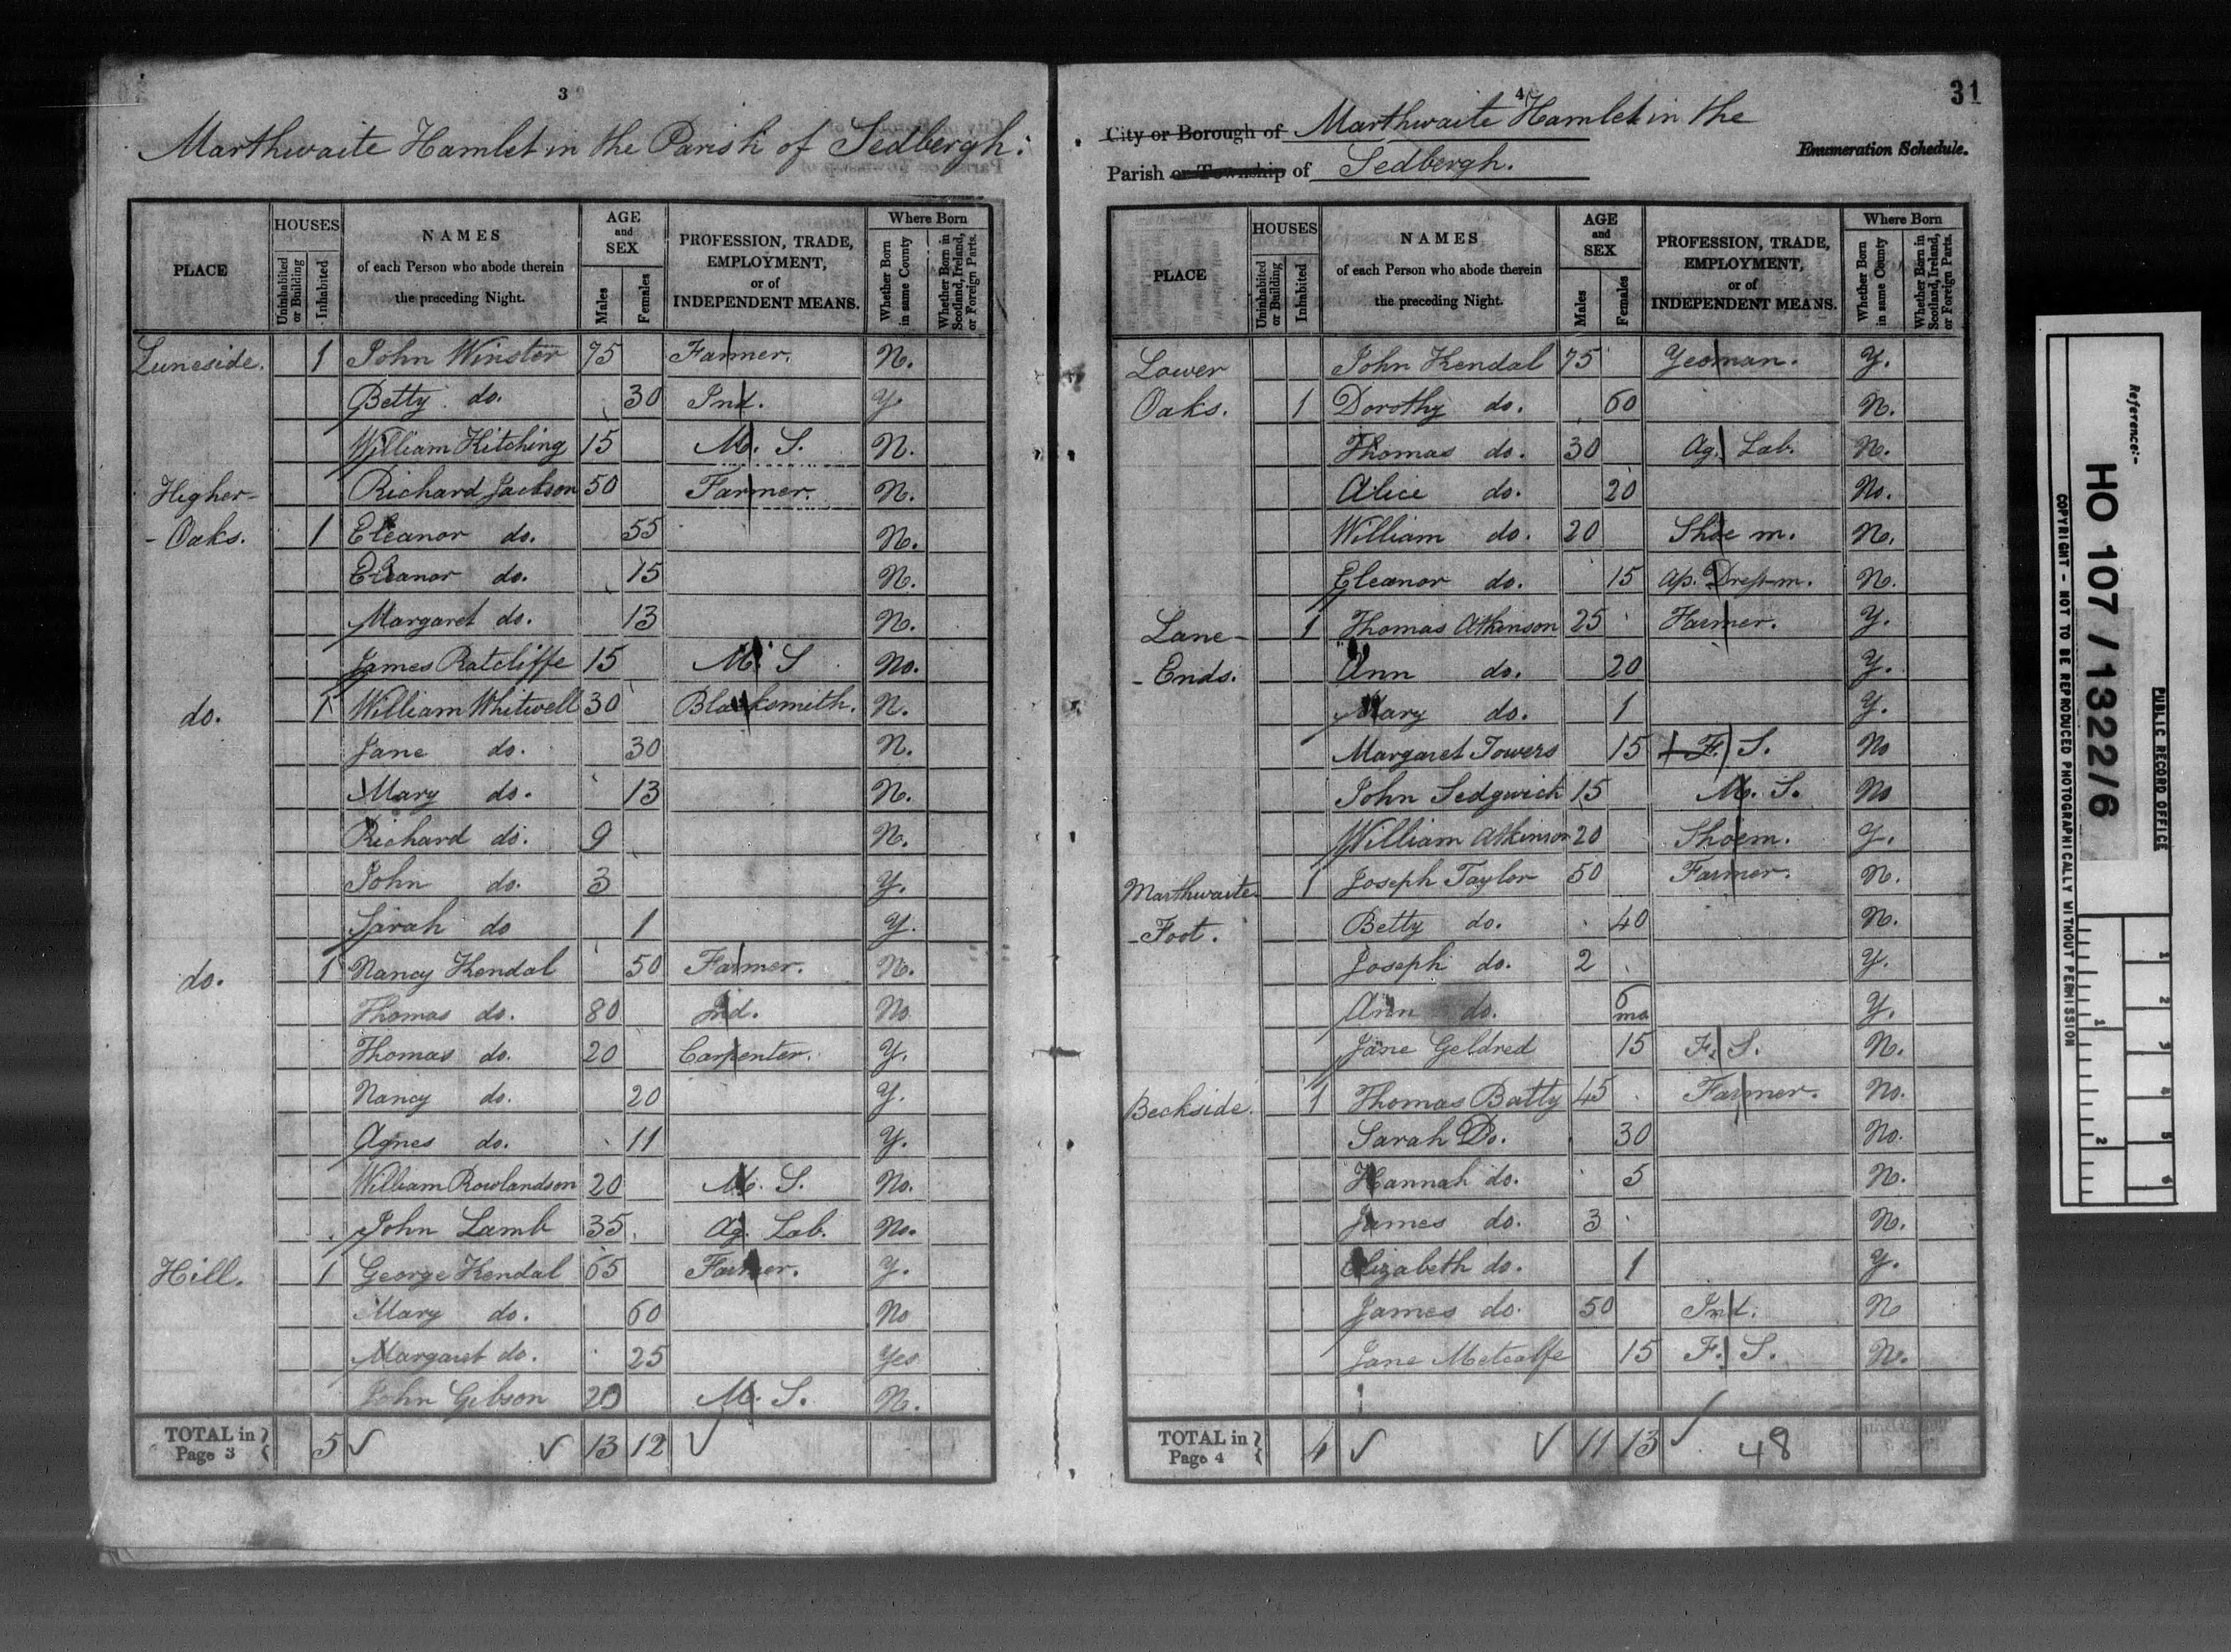 3
Marthwaite Hamlet in the Parish of Sedbergh:
PLACE HOUSES Uninhabited or Building Inhabited NAMES of each Person who abode therein the preceding Night. AGE and SEX Males Females PROFESSION, TRADE, EMPLOYMENT, or of INDEPENDENT MEANS. Where Born Whether Born in same County Whether Born in Scotland, Ireland, or Foreign Parts.
Luneside. 1 John Winster 75 Farmer. N.
Betty do. 30 Ind. Y
William Kitching 15 M. S. N.
Higher- Richard Jackson 50 Farmer. N.
- Oaks. 1 Eleanor do. 55 N.
Eleanor do. 15 N.
Margaret do. 13 N.
James Ratcliffe 15 M. S No.
do. 1 William Whitwell 30 Blacksmith. N.
Jane do. 30 N.
Mary do. 13 N.
Richard do. 9 N.
John do. 3 Y.
Sarah do 1 Y.
do. 1 Nancy Kendal 50 Farmer. N.
Thomas do. 80 Ind. No
Thomas do. 20 Carpenter. Y.
Nancy do. 20 Y.
Agnes do. 11 Y.
William Rowlandson 20 M. S. No.
John Lamb 35 Ag. Lab. No.
Hill. 1 George Kendal 65 Farmer. Y.
Mary do. 60 No
Margaret do. 25 Yes
John Gibson 20 M. S. N.
TOTAL in Page 3 5 13 12
4
31
City or Borough of Marthwaite Hamlet in the
Enumeration Schedule.
Parish or Township of Sedbergh.
PLACE HOUSES Uninhabited or Building Inhabited NAMES of each Person who abode therein the preceding Night. AGE and SEX Males Females PROFESSION, TRADE, EMPLOYMENT, or of INDEPENDENT MEANS. Where Born Whether Born in same County Whether Born in Scotland, Ireland, or Foreign Parts.
Lower John Kendal 75 Yeoman. Y.
Oaks. 1 Dorothy do. 60 N.
Thomas do. 30 Ag. Lab. N.
Alice do. 20 No.
William do. 20 Shoe m. N.
Eleanor do. 15 Ap. Dress m. N.
Lane- 1 Thomas Atkinson 25 Farmer. Y.
- Ends. Ann do. 20 Y.
Mary do. 1 Y.
Margaret Towers 15 F. S. No
John Sedgwick 15 M. S. No
William Atkinson 20 Shoem. Y.
Marthwaite- 1 Joseph Taylor 50 Farmer. N.
- Foot. Betty do. 40 N.
Joseph do. 2 Y.
Ann do. 6 mo Y.
Jane Geldred 15 F. S. N.
Beckside. 1 Thomas Batty 45 Farmer. No.
Sarah Do. 30 No.
Hannah do. 5 N.
James do. 3 N.
Elizabeth do. 1 Y.
James do. 50 Ind. N
Jane Metcalfe 15 F. S. N.
TOTAL in Page 4 4 11 13 48
Reference:-
HO 107 / 1322/6
PUBLIC RECORD OFFICE
COPYRIGHT - NOT TO BE REPRODUCED PHOTOGRAPHICALLY WITHOUT PERMISSION
1 2 3 4 5 6
1 2